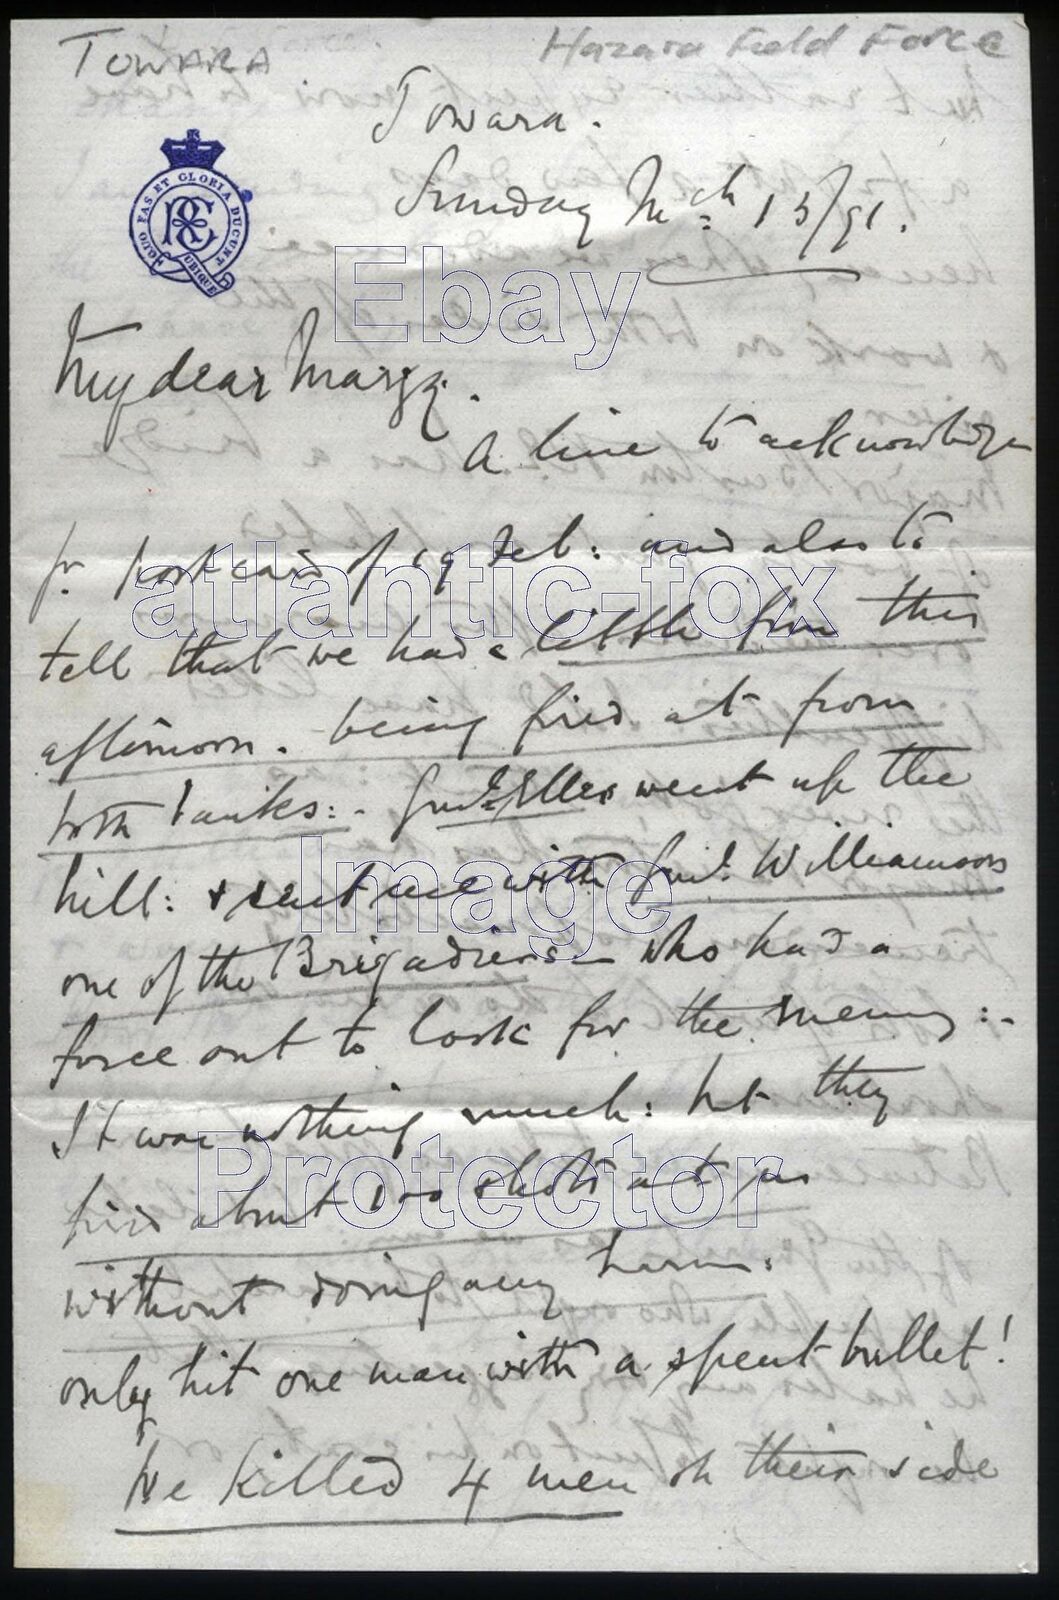 TOWARA
Hazara Field Force
Towara.
Sunday Mch 15/91.
QUO FAS ET GLORIA DUCUNT
UBIQUE
My dear
A line to acknowledge
for post card of 19 Feb: and also to
tell that we had a little fun this
afternoon. being fired at from
both banks:- Genl. Elles went up the
hill: & sent me with Genl. Williamson
one of the Brigadiers - who had a
force out to look for the enemy:-
It was nothing much: but they
fired about 100 shots at us
without doing any harm:
only hit one man with a spent bullet!
We killed 4 men on their side
Ebay
atlantic-fox
Image
Protector